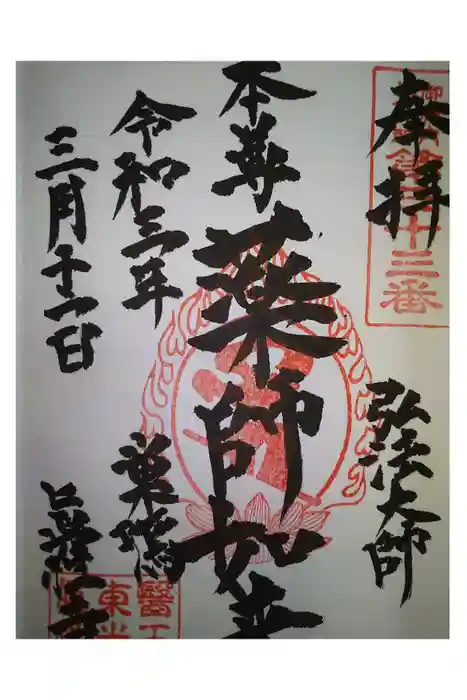 奉拝
弘法大師
本尊
薬師如来
令和三年
三月十一日
巣鴨
十三番
醫王
東光